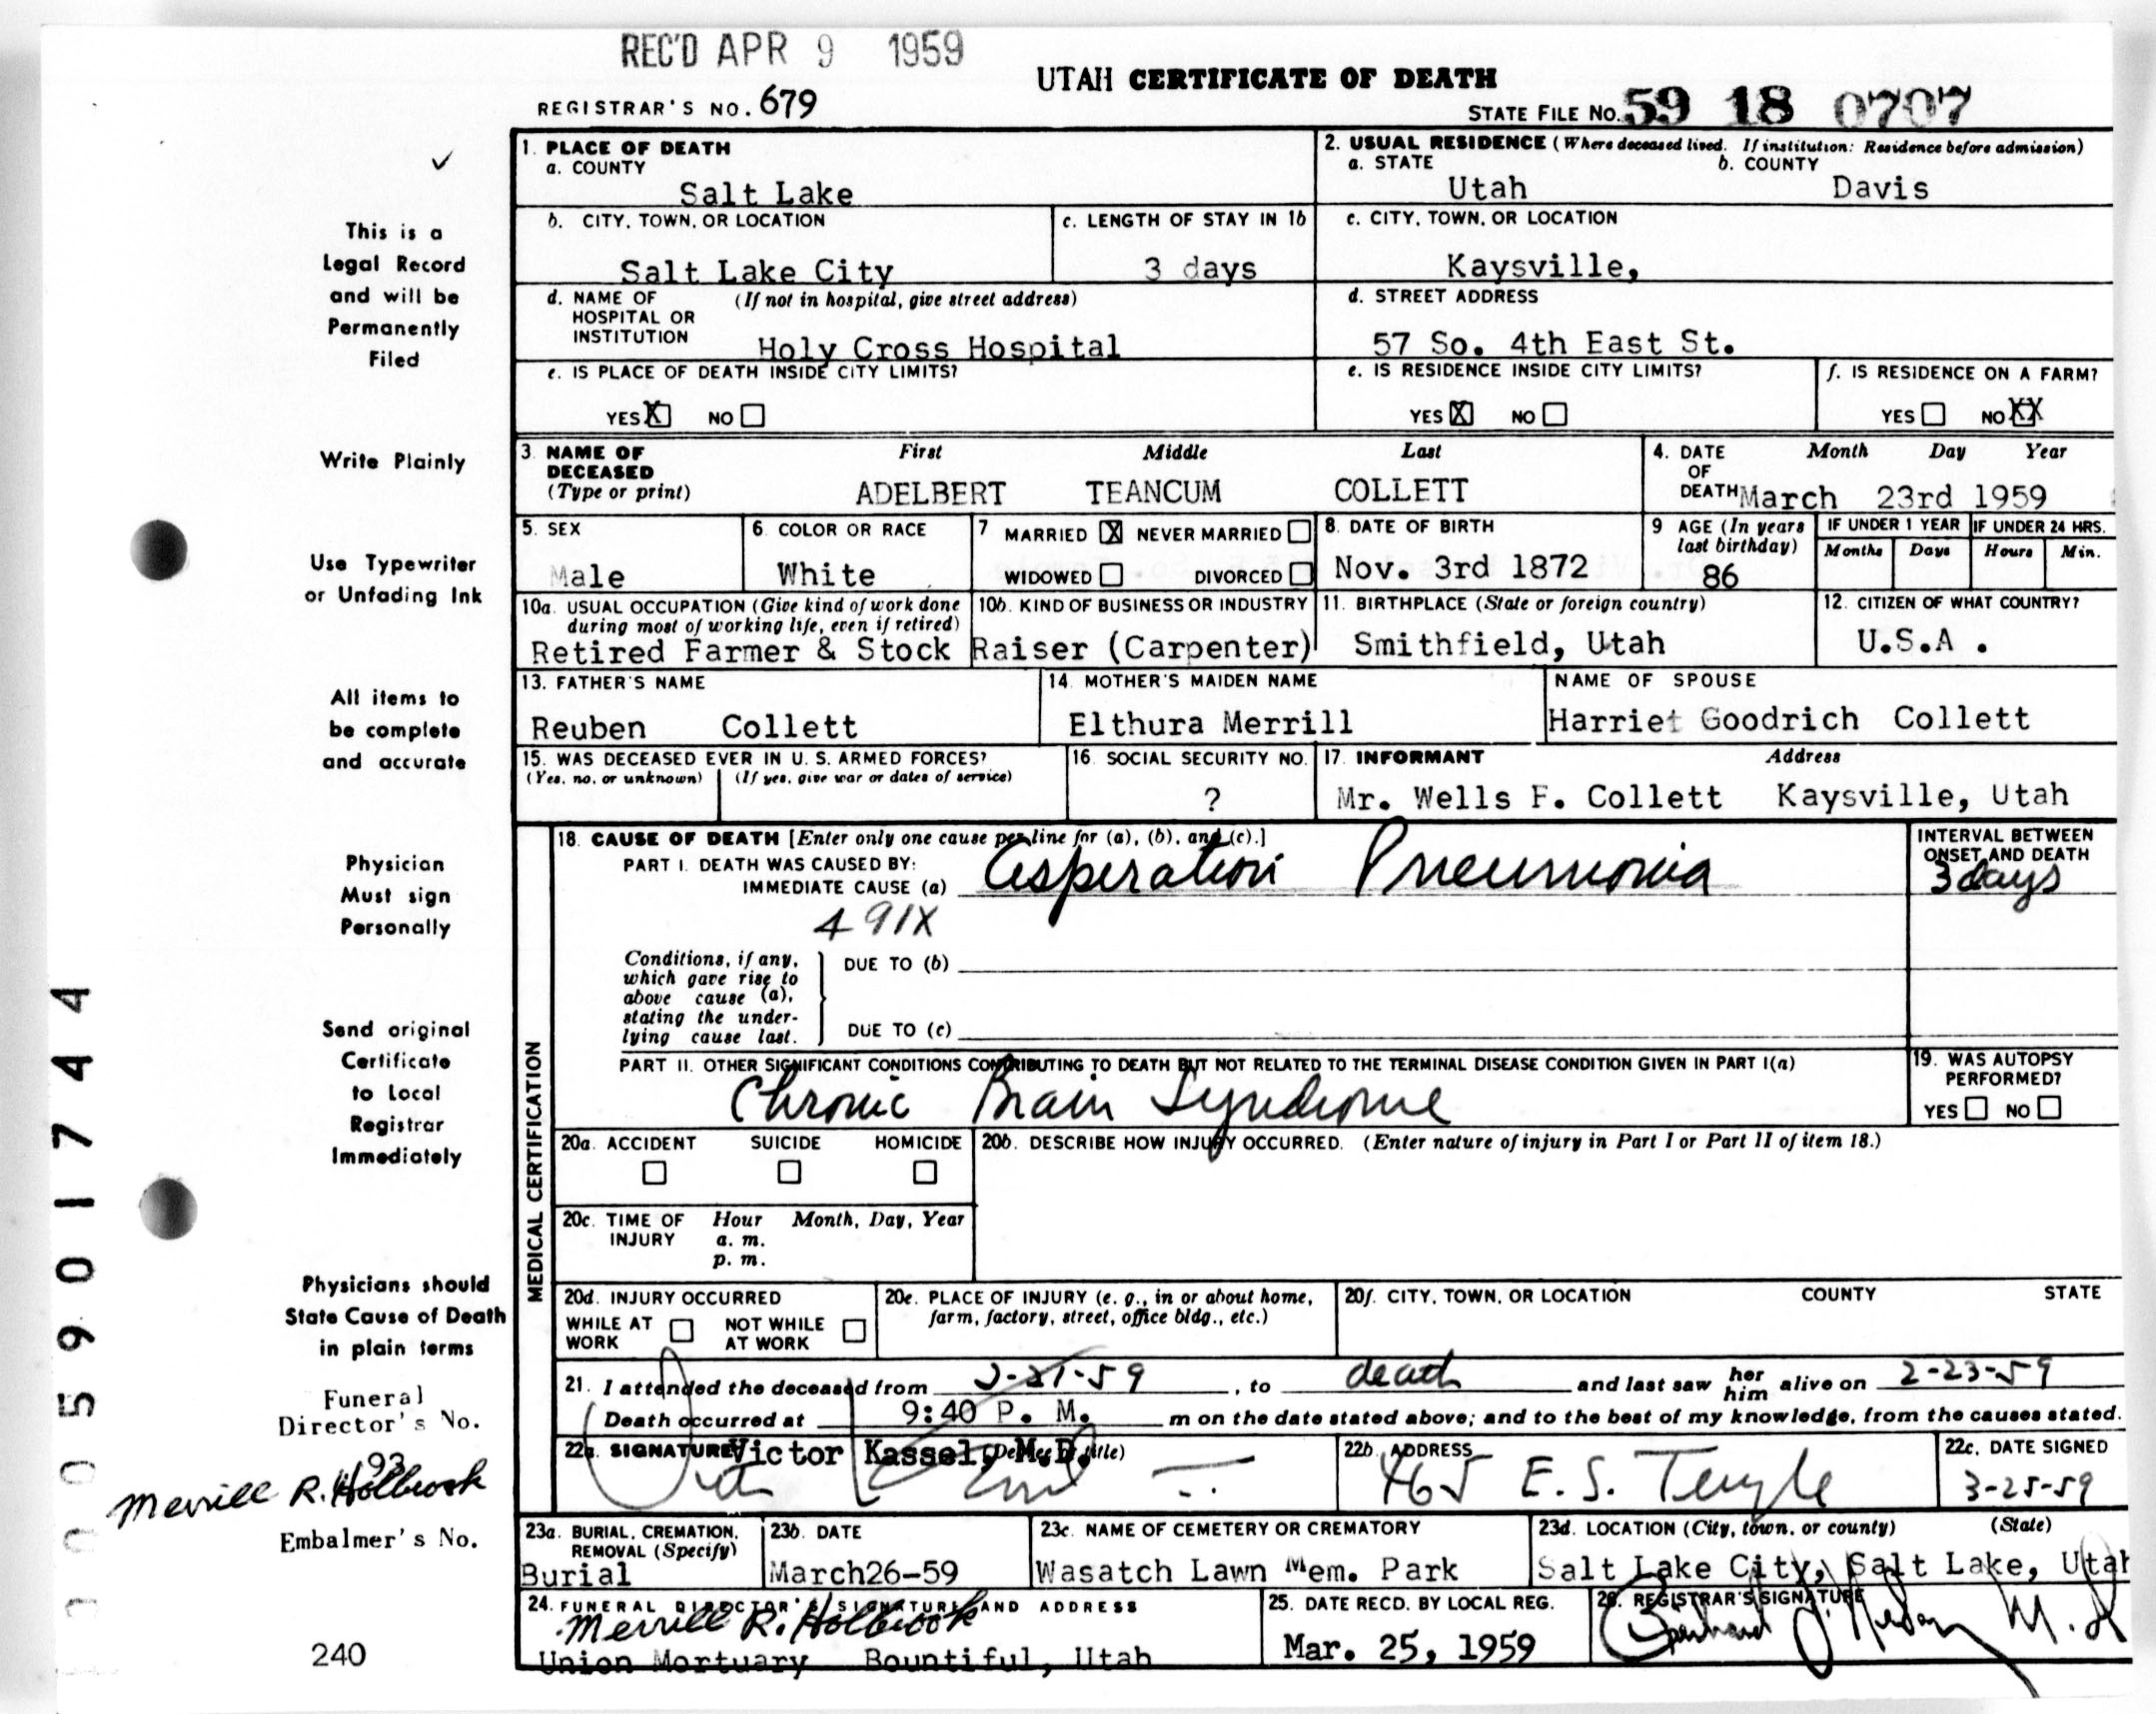 REC'D APR 9 1959
UTAH CERTIFICATE OF DEATH
REGISTRAR'S NO. 679
STATE FILE NO. 59 18 0707
1. PLACE OF DEATH
a. COUNTY
Salt Lake
2. USUAL RESIDENCE (Where deceased lived. If institution: Residence before admission)
a. STATE b. COUNTY
Utah Davis
b. CITY, TOWN, OR LOCATION
Salt Lake City
c. LENGTH OF STAY IN 1b
3 days
c. CITY, TOWN, OR LOCATION
Kaysville,
d. NAME OF (If not in hospital, give street address)
HOSPITAL OR
INSTITUTION
Holy Cross Hospital
d. STREET ADDRESS
57 So. 4th East St.
e. IS PLACE OF DEATH INSIDE CITY LIMITS?
YES X NO
e. IS RESIDENCE INSIDE CITY LIMITS?
YES X NO
f. IS RESIDENCE ON A FARM?
YES NO XX
3. NAME OF DECEASED (Type or print)
First Middle Last
ADELBERT TEANCUM COLLETT
4. DATE OF DEATH
Month Day Year
March 23rd 1959
5. SEX
Male
6. COLOR OR RACE
White
7 MARRIED X NEVER MARRIED
WIDOWED DIVORCED
8. DATE OF BIRTH
Nov. 3rd 1872
9 AGE (In years last birthday)
86
IF UNDER 1 YEAR
Months Days
IF UNDER 24 HRS.
Hours Min.
10a. USUAL OCCUPATION (Give kind of work done
during most of working life, even if retired)
10b. KIND OF BUSINESS OR INDUSTRY
Retired Farmer & Stock Raiser (Carpenter)
11. BIRTHPLACE (State or foreign country)
Smithfield, Utah
12. CITIZEN OF WHAT COUNTRY?
U.S.A .
13. FATHER'S NAME
Reuben Collett
14. MOTHER'S MAIDEN NAME
Elthura Merrill
NAME OF SPOUSE
Harriet Goodrich Collett
15. WAS DECEASED EVER IN U. S. ARMED FORCES?
(Yes, no, or unknown) (If yes, give war or dates of service)
16. SOCIAL SECURITY NO.
?
17. INFORMANT Address
Mr. Wells F. Collett Kaysville, Utah
MEDICAL CERTIFICATION
18. CAUSE OF DEATH [Enter only one cause per line for (a), (b), and (c).]
PART I. DEATH WAS CAUSED BY:
IMMEDIATE CAUSE (a) Asperation Pneumonia
491X
INTERVAL BETWEEN
ONSET AND DEATH
3 days
Conditions, if any,
which gave rise to
above cause (a),
stating the under-
lying cause last.
DUE TO (b)
DUE TO (c)
PART II. OTHER SIGNIFICANT CONDITIONS CONTRIBUTING TO DEATH BUT NOT RELATED TO THE TERMINAL DISEASE CONDITION GIVEN IN PART I(a)
Chronic Brain Syndrome
19. WAS AUTOPSY
PERFORMED?
YES NO
20a. ACCIDENT SUICIDE HOMICIDE
20b. DESCRIBE HOW INJURY OCCURRED. (Enter nature of injury in Part I or Part II of item 18.)
20c. TIME OF INJURY
Hour Month, Day, Year
a. m.
p. m.
20d. INJURY OCCURRED
WHILE AT WORK NOT WHILE AT WORK
20e. PLACE OF INJURY (e. g., in or about home,
farm, factory, street, office bldg., etc.)
20f. CITY, TOWN, OR LOCATION COUNTY STATE
21. I attended the deceased from 2-21-59, to death and last saw her him alive on 2-23-59
Death occurred at 9:40 P. M. m on the date stated above; and to the best of my knowledge, from the causes stated.
22a. SIGNATURE (Degree or title)
Victor Kassel, M.D.
22b. ADDRESS
465 E. S. Temple
22c. DATE SIGNED
3-25-59
23a. BURIAL, CREMATION,
REMOVAL (Specify)
Burial
23b. DATE
March26-59
23c. NAME OF CEMETERY OR CREMATORY
Wasatch Lawn Mem. Park
23d. LOCATION (City, town, or county) (State)
Salt Lake City, Salt Lake, Utah
24. FUNERAL DIRECTOR'S SIGNATURE AND ADDRESS
Merrill R. Holbrook
Union Mortuary Bountiful, Utah
25. DATE RECD. BY LOCAL REG.
Mar. 25, 1959
26. REGISTRAR'S SIGNATURE
M. D
This is a
Legal Record
and will be
Permanently
Filed
Write Plainly
Use Typewriter
or Unfading Ink
All items to
be complete
and accurate
Physician
Must sign
Personally
Send original
Certificate
to Local
Registrar
Immediately
Physicians should
State Cause of Death
in plain terms
Funeral
Director's No.
93
Merrill R. Holbrook
Embalmer's No.
240
005901744